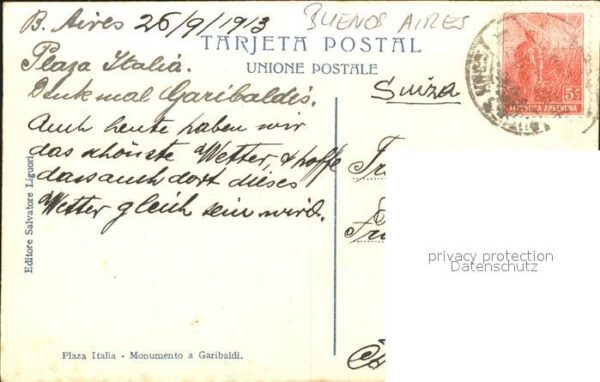 B. Aires 26/9/1913
BUENOS AIRES
TARJETA POSTAL
UNIONE POSTALE
Plaza Italia.
Denkmal Garibaldis.
Auch heute haben wir
das schönste Wetter, & hoffe
dass auch dort dieses
Wetter gleich sein wird.
Suiza
5c
REPUBLICA ARGENTINA
privacy protection
Datenschutz
Editore Salvatore Liguori
Plaza Italia - Monumento a Garibaldi.